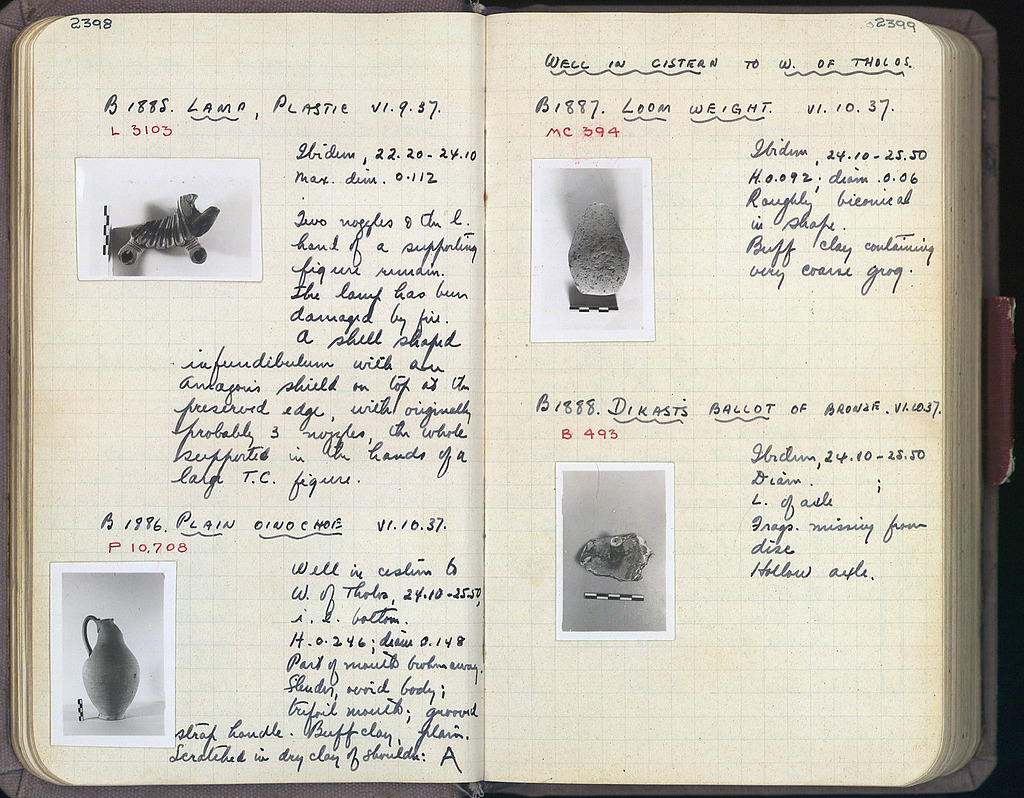 2398
B 1885. LAMP, PLASTIC VI.9.37.
L 3103
Ibidem, 22.20-24.10
Max. dim. 0.112
Two nozzles & the l.
hand of a supporting
figure remain.
The lamp has been
damaged by fire.
A shell shaped
infundibulum with an
Amazon's shield on top at the
preserved edge, with originally
probably 3 nozzles, the whole
supported in the hands of a
large T.C. figure.
B 1886. PLAIN OINOCHOE VI.10.37.
P 10,708
Well in cistern to
W. of Tholos, 24.10-25.50,
i.e. bottom.
H. 0.246; diam 0.148
Part of mouth broken away.
Slender, ovoid body;
trefoil mouth; grooved
strap handle. Buff clay, plain.
Scratched in dry clay of shoulder: A
2399
WELL IN CISTERN TO W. OF THOLOS.
B 1887. LOOM WEIGHT. VI.10.37.
MC 394
Ibidem, 24.10-25.50
H. 0.092; diam. 0.06
Roughly biconical
in shape.
Buff clay containing
very coarse grog.
B 1888. DIKAST'S BALLOT OF BRONZE. VI.10.37.
B 493
Ibidem, 24.10-25.50
Diam. ;
L. of axle
Frags. missing from
disc
Hollow axle.